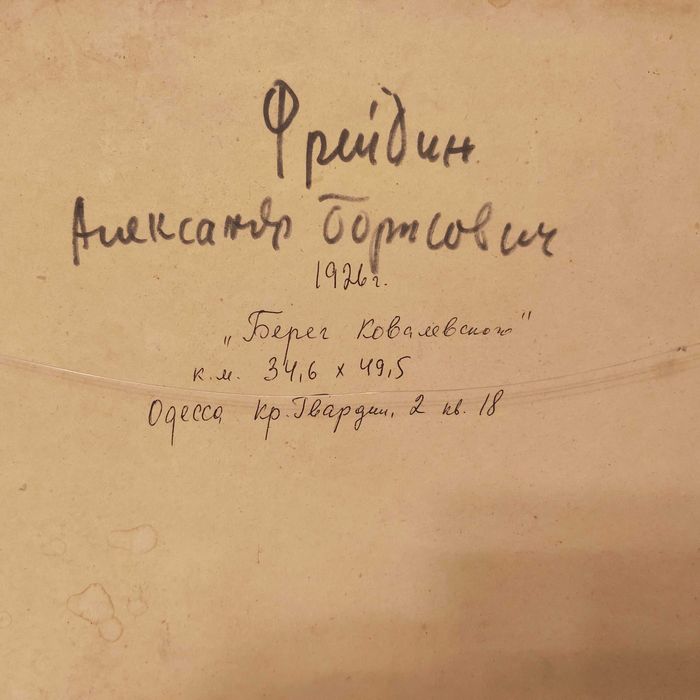 Фрейдин
Александр Борисович
1926г.
„Берег Ковалевского"
к.м. 34,6 х 49,5
Одесса кр. Гвардии, 2 кв. 18